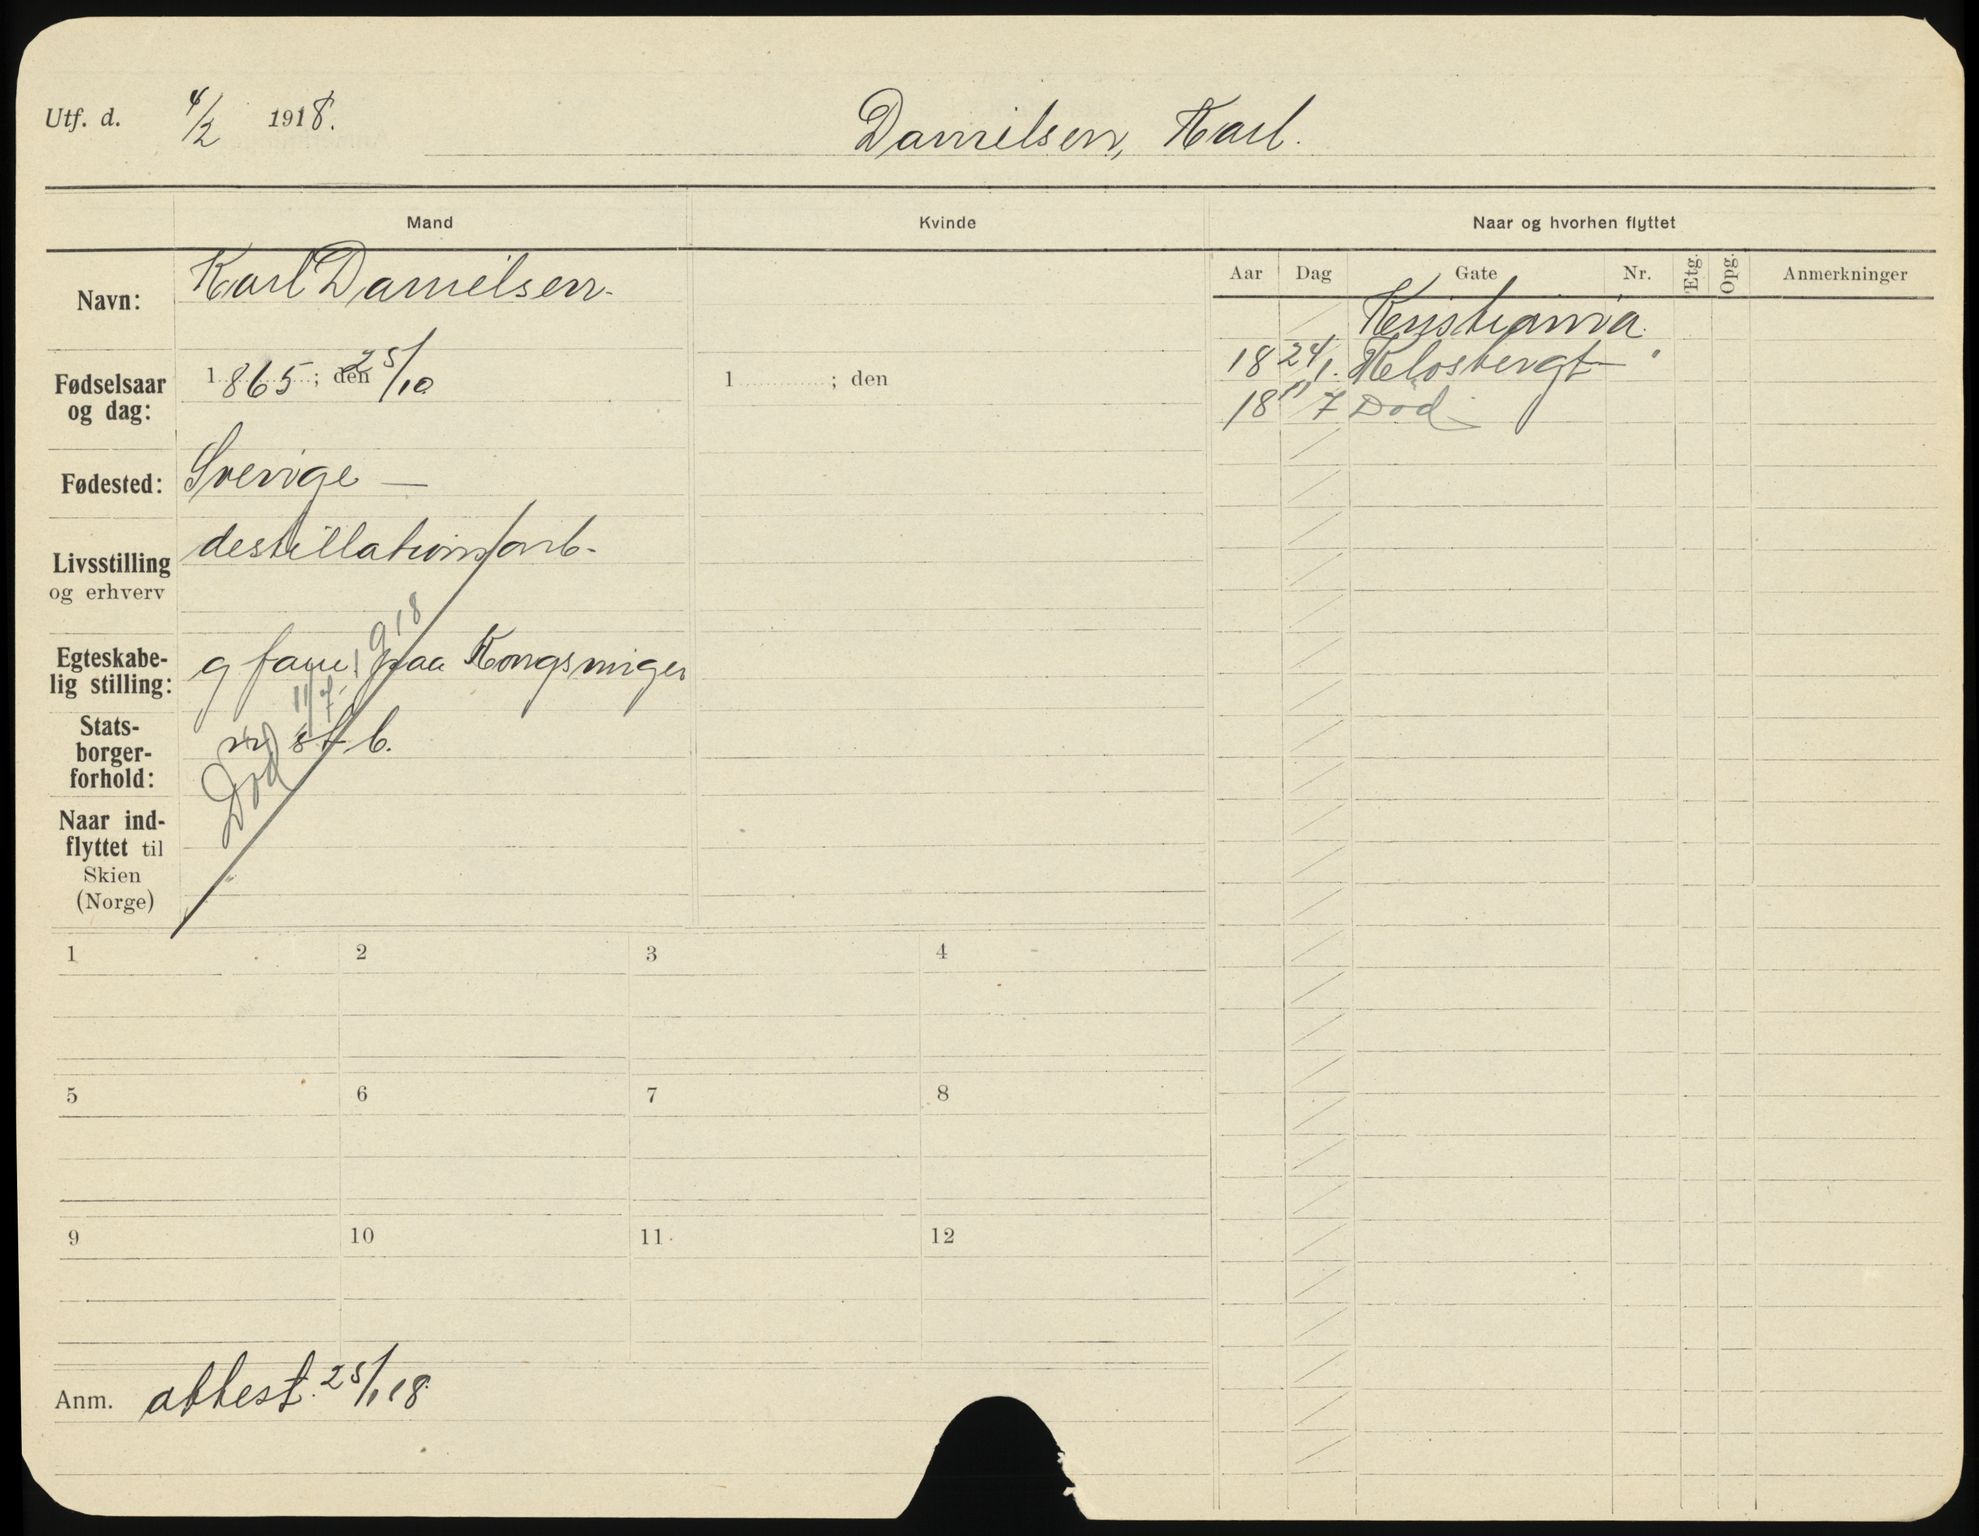 Utf. d. 4/2 1918.
Danielsen, Karl.
Mand
Kvinde
Naar og hvorhen flyttet
Aar Dag Gate Nr. Etg. Opg. Anmerkninger
Navn: Karl Danielsen.
Kristiania
Fødselsaar og dag: 1865; den 25/10
1 ; den
18 24/1. Klosbergt
18 11/7 Død
Fødested: Sverige —
Livsstilling og erhverv
destillations arb.
Egteskabelig stilling: g fam. paa Kongsvinger
Statsborgerforhold: st. b.
Død 11/7 1918
Naar indflyttet til Skien (Norge)
1 2 3 4
5 6 7 8
9 10 11 12
Anm. attest. 25/1 18.